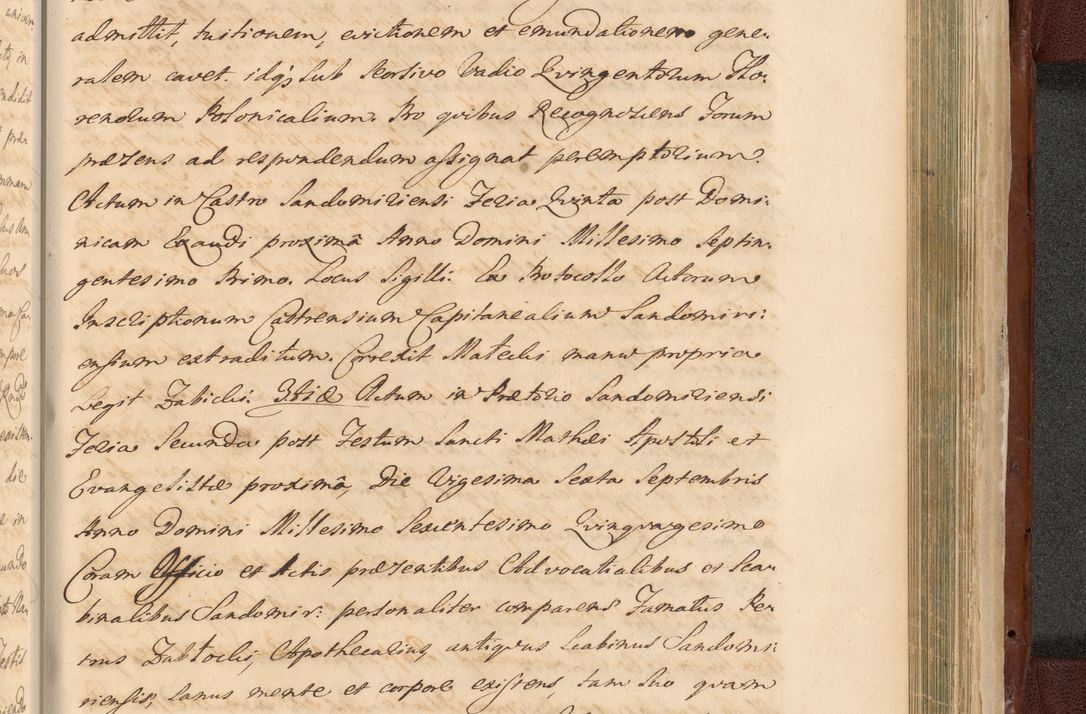 admittit, tuitionem, evictionem et emundationem gene-
ralem cavet. idq; sub seorsivo Vadio Qvingentorum Flo-
renorum Polonicalium. Pro quibus Recognoscens Forum
præsens ad respondendum assignat peremptorium.
Actum in Castro Sandomiriensi Feria Qvinta post Domi-
nicam Exaudi proximâ Anno Domini Millesimo Septin-
gentesimo Primo. Locus Sigilli. Ex Protocollo Actorum
Inscriptionum Castrensium Capitanealium Sandomiri:
ensium extraditum. Correxit Matecki manu propria
Legit Zabicki. Item Actum in Prætorio Sandomiriensi
Feria Secunda post Festum Sancti Mathæi Apostoli et
Evangelistæ proximâ, Die Vigesima Sexta Septembris
Anno Domini Millesimo Sexcentesimo Qvinqvagesimo
Coram Officio et Actis præsentibus Advocatialibus et Sca-
binalibus Sandomir: personaliter comparens Famatus Pe-
trus Apothecarius, antiqvus Scabinus Sandomi-
riensis, sanus mente et corpore existens, tam suo quam